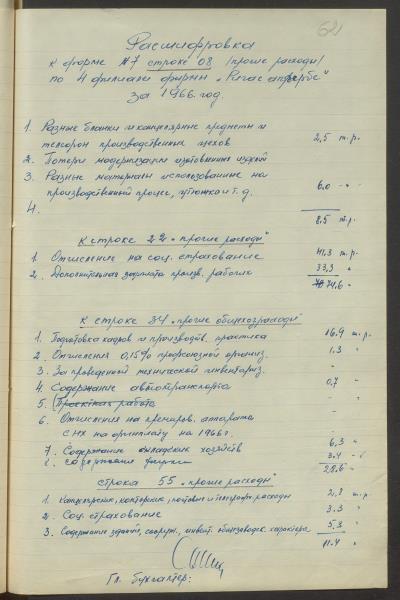 621
Расшифровка
к форме №7 строке 08 /проше расходы/
по 4 филиалу фирмы „Ригас апгербс"
за 1966 год
1. Разные бланки и канцелярские предметы и
телефон производственных цехов 2,5 т.р.
2. Потери модернизации изготовленных изделий
3. Разные материалы использованные на
производственный процес, утюжка и т.д. 6,0 -"-
4.
8,5 т.р.
К строке 22 „проше расходы"
1. Отчисление на соц. страхование 41,3 т.р.
2. Дополнительная зарплата произв. рабочих 33,3 "
74,6 "
К строке 34 „проше общехоз расходы"
1. Подготовка кадров и производств. практика 16.9 т.р.
2. Отчисления 0,15% профсоюзной организ. 1.3 "
3. За проведение технической инвентариз. - "
4 Содержание автотранспорта 0,7 "
5. Проектная работа - "
6. Отчисления на премиров. аппарата
СНХ на оргинплату на 1966 г. -
7. Содержание складских хозяйств 6,3 "
8. содержание фирмы 3.4 "
28.6 "
строка 55 „проше расходы"
1. Канцелярские, конторские, почтовые и телеграфн. расходы 2,8 т.р.
2. Соц. страхование 3.3 "
3. Содержание зданий, сооруж., инвент. общезаводск. характера 5,3 "
11.4 "
Гл. бухгалтер: